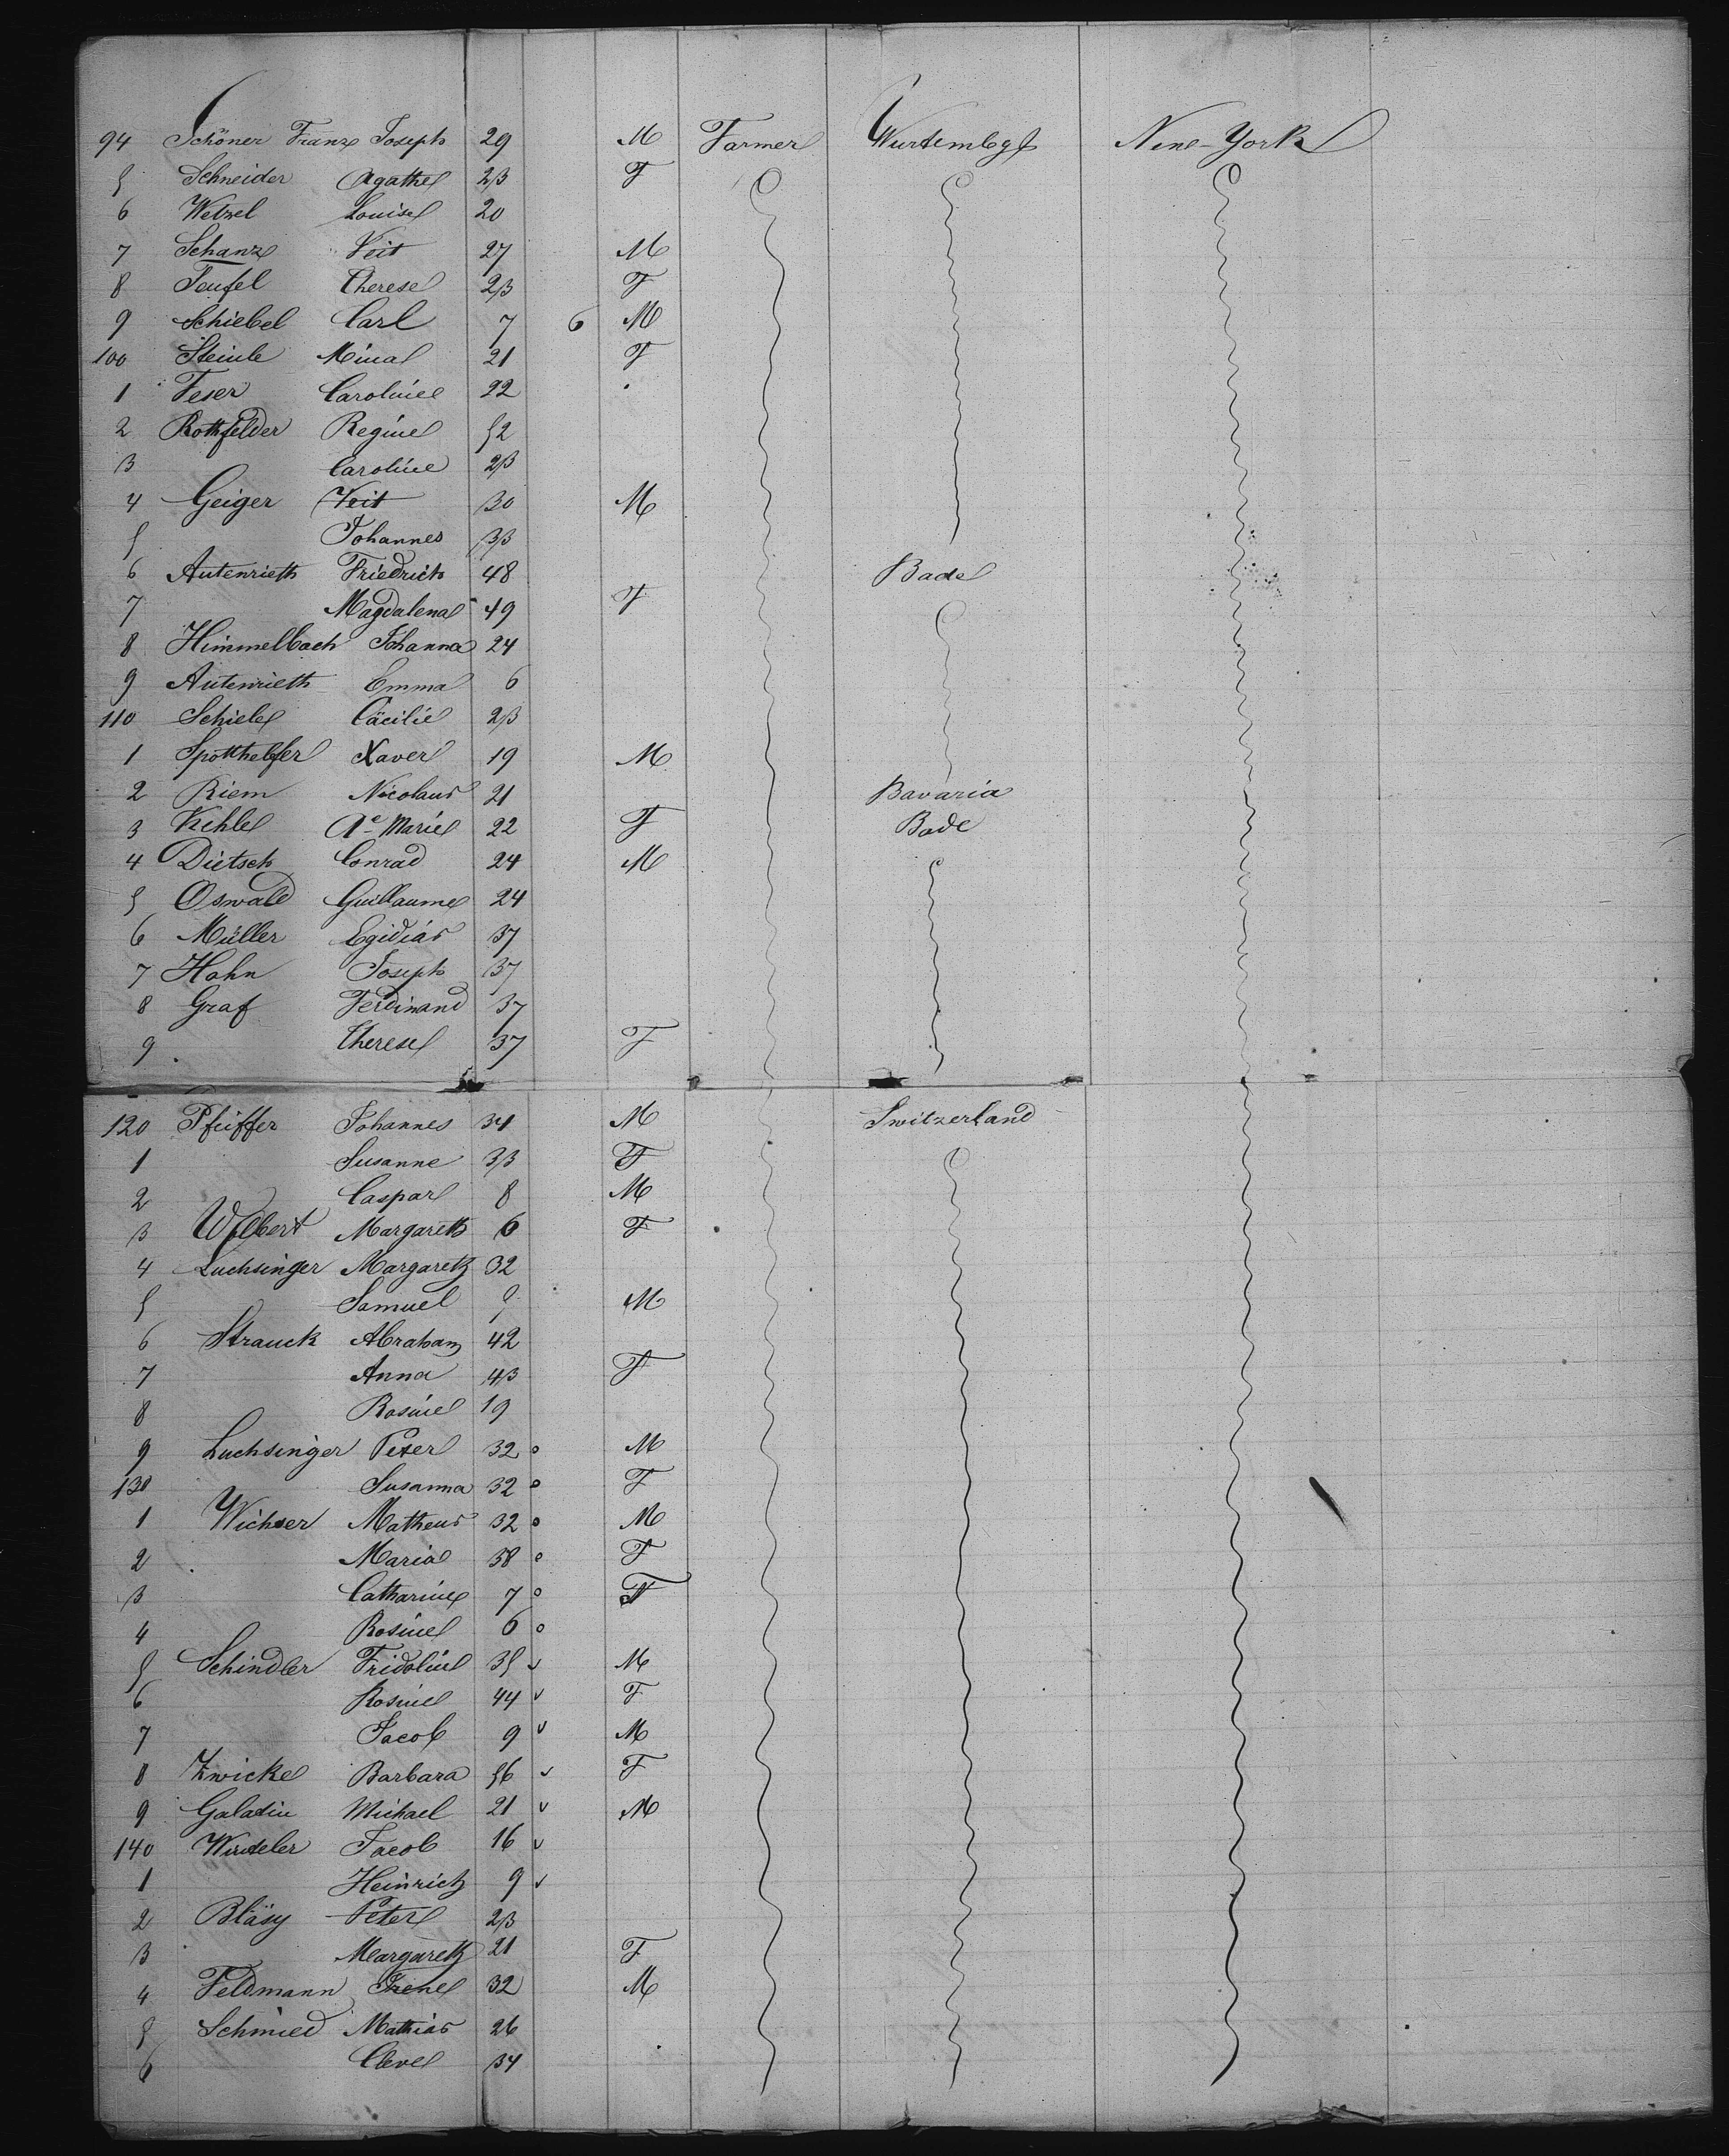 94 Schöner Franz Joseph 29 M Farmer Wurtembg New-York
5 Schneider Agathe 23 F
6 Wetzel Louise 20
7 Schanz Veit 27 M
8 Teufel Therese 23 F
9 Schiebel Carl 7 6 M
100 Steinle Mina 21 F
1 Feser Caroline 22
2 Rothfelder Regine 52
3 Caroline 23
4 Geiger Veit 30 M
5 Johannes 33
6 Autenrieth Friedrich 48 Bade
7 Magdalena 49 F
8 Himmelbach Johanna 24
9 Autenrieth Emma 6
110 Schiele Cäcilie 23
1 Spotthelfer Xaver 19 M
2 Riem Nicolaus 21 Bavaria
3 Kehle Ae Marie 22 F Bade
4 Dietsch Conrad 24 M
5 Oswald Guillaume 24
6 Müller Egidias 37
7 Hahn Joseph 37
8 Graf Ferdinand 37
9 Therese 37 F
120 Pfeiffer Johannes 34 M Switzerland
1 Susanne 33 F
2 Caspar 8 M
3 Wilbert Margareth 6 F
4 Luchsinger Margareth 32
5 Samuel M
6 Strauck Abraham 42
7 Anna 43 F
8 Rosine 19
9 Luchsinger Peter 32 o M
130 Susanna 32 o F
1 Wichser Matheus 32 o M
2 Maria 38 o F
3 Catharine 7 o F
4 Rosine 6 o
5 Schindler Fridolin 35 v M
6 Rosine 44 v F
7 Jacob 9 v M
8 Zwicke Barbara 56 v F
9 Galatin Michael 21 v M
140 Jacob 16 v
1 Heinrich 9 v
2 Bläsy Peter 23
3 Margareth 21 F
4 Feldmann Irene 32 M
5 Schmied Mathias 26
6 34